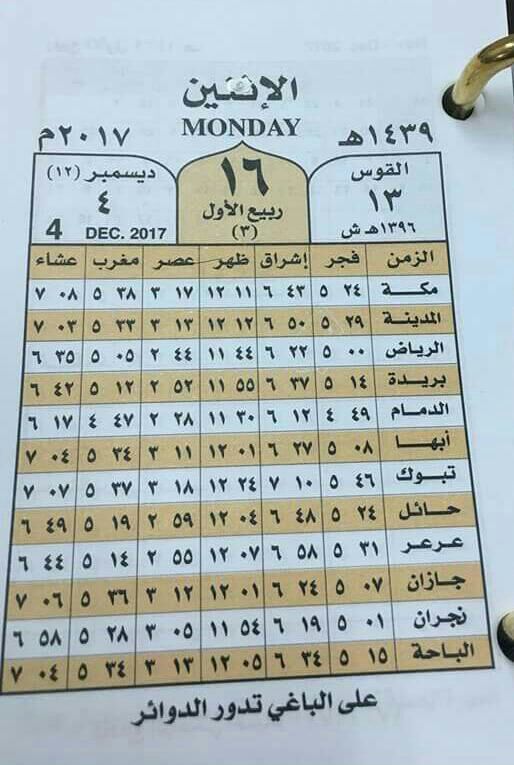 الإثنين
MONDAY
١٤٣٩هـ ٢٠١٧م
القوس ١٣ ١٣٩٦هـ ش
١٦ ربيع الأول (٣)
ديسمبر (١٢) ٤
4 DEC. 2017
الزمن فجر إشراق ظهر عصر مغرب عشاء
مكة ٢٤ ٥ ٤٣ ٦ ١١ ١٢ ١٧ ٣ ٣٨ ٥ ٠٨ ٧
المدينة ٢٩ ٥ ٥٠ ٦ ١٢ ١٢ ١٣ ٣ ٣٣ ٥ ٠٣ ٧
الرياض ٠٠ ٥ ٢٢ ٦ ٤٤ ١١ ٤٤ ٢ ٠٥ ٥ ٣٥ ٦
بريدة ١٤ ٥ ٣٧ ٦ ٥٥ ١١ ٥٢ ٢ ١٢ ٥ ٤٢ ٦
الدمام ٤٩ ٤ ١٢ ٦ ٣٠ ١١ ٢٨ ٢ ٤٧ ٤ ١٧ ٦
أبها ٠٨ ٥ ٢٧ ٦ ٠١ ١٢ ١١ ٣ ٣٤ ٥ ٠٤ ٧
تبوك ٤٦ ٥ ١٠ ٧ ٢٤ ١٢ ١٨ ٣ ٣٧ ٥ ٠٧ ٧
حائل ٢٤ ٥ ٤٨ ٦ ٠٤ ١٢ ٥٩ ٢ ١٩ ٥ ٤٩ ٦
عرعر ٣١ ٥ ٥٨ ٦ ٠٧ ١٢ ٥٥ ٢ ١٤ ٥ ٤٤ ٦
جازان ٠٧ ٥ ٢٤ ٦ ٠١ ١٢ ١٢ ٣ ٣٦ ٥ ٠٦ ٧
نجران ٠١ ٥ ١٩ ٦ ٥٤ ١١ ٠٥ ٣ ٢٨ ٥ ٥٨ ٦
الباحة ١٥ ٥ ٣٤ ٦ ٠٥ ١٢ ١٣ ٣ ٣٤ ٥ ٠٤ ٧
على الباغي تدور الدوائر